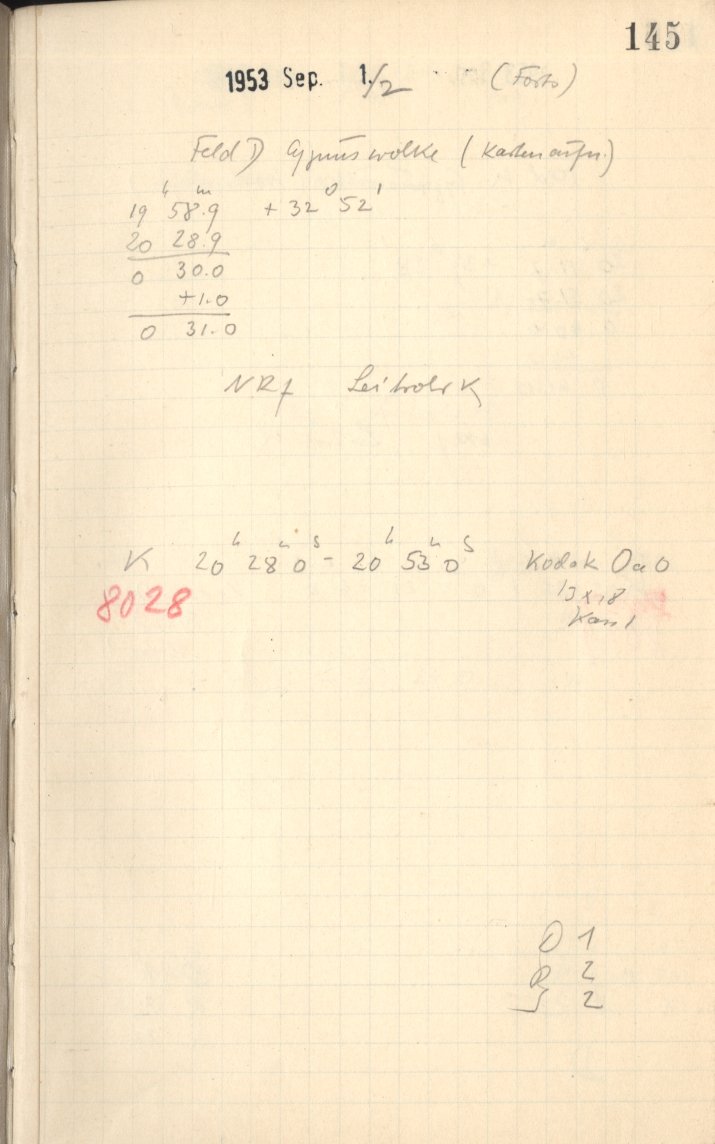 145
1953 Sep. 1./2 (Forts)
Feld D Cygnuswolke (Kartenaufn.)
19ʰ 58.9ᵐ + 32° 52'
20 28.9
0 30.0
+1.0
0 31.0
NRf Leitrohr K
K 20ʰ 28ᵐ 0ˢ - 20ʰ 53ᵐ 0ˢ Kodak OaO
8028 13x18
Kass 1
D 1
R 2
2